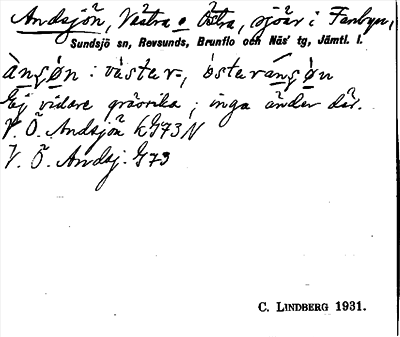 Andsjön, Västra o Östra, sjöar i Fanbyn,
Sundsjö sn, Revsunds, Brunflo och Näs' tg, Jämtl. l.
àngøn : västər-, östərángøn
Ej vidare gräsrika; inga änder där.
V. Ö. Andsjön kG73N
V. Ö. Andsj. G73
C. LINDBERG 1931.